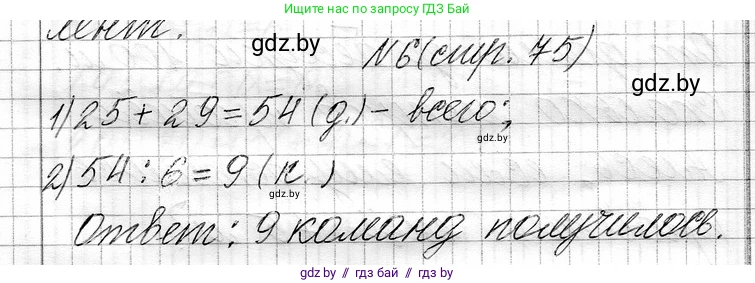 Ищите нас по запросу ГДЗ Бай
лент.
gdz.by
№6 (стр. 75)
gdz.by
1) 25 + 29 = 54 (д.) - всего;
gdz.by
2) 54 : 6 = 9 (к.)
gdz.by
Ответ: 9 команд получилось.
gdz.by // гдз бай // gdz.by